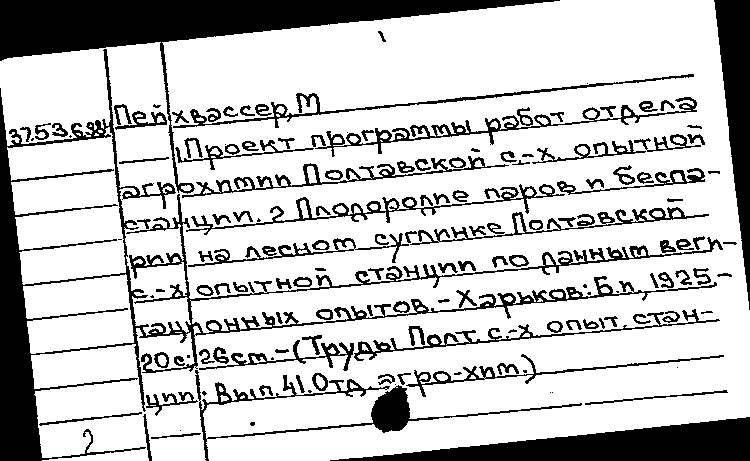 37.53.6.984 Пейхвассер, М
1. Проект программы работ отдела
агрохимии Полтавской с.-х. опытной
станции. 2 Плодородие паров и беспа-
рии на лесном суглинке Полтавской
с.-х. опытной станции по данным веги-
тационных опытов. - Харьков: Б.и., 1925.-
20 с.; 26 см. - (Труды Полт. с.-х опыт. стан-
ции; Вып. 41. Отд. агро-хим.)